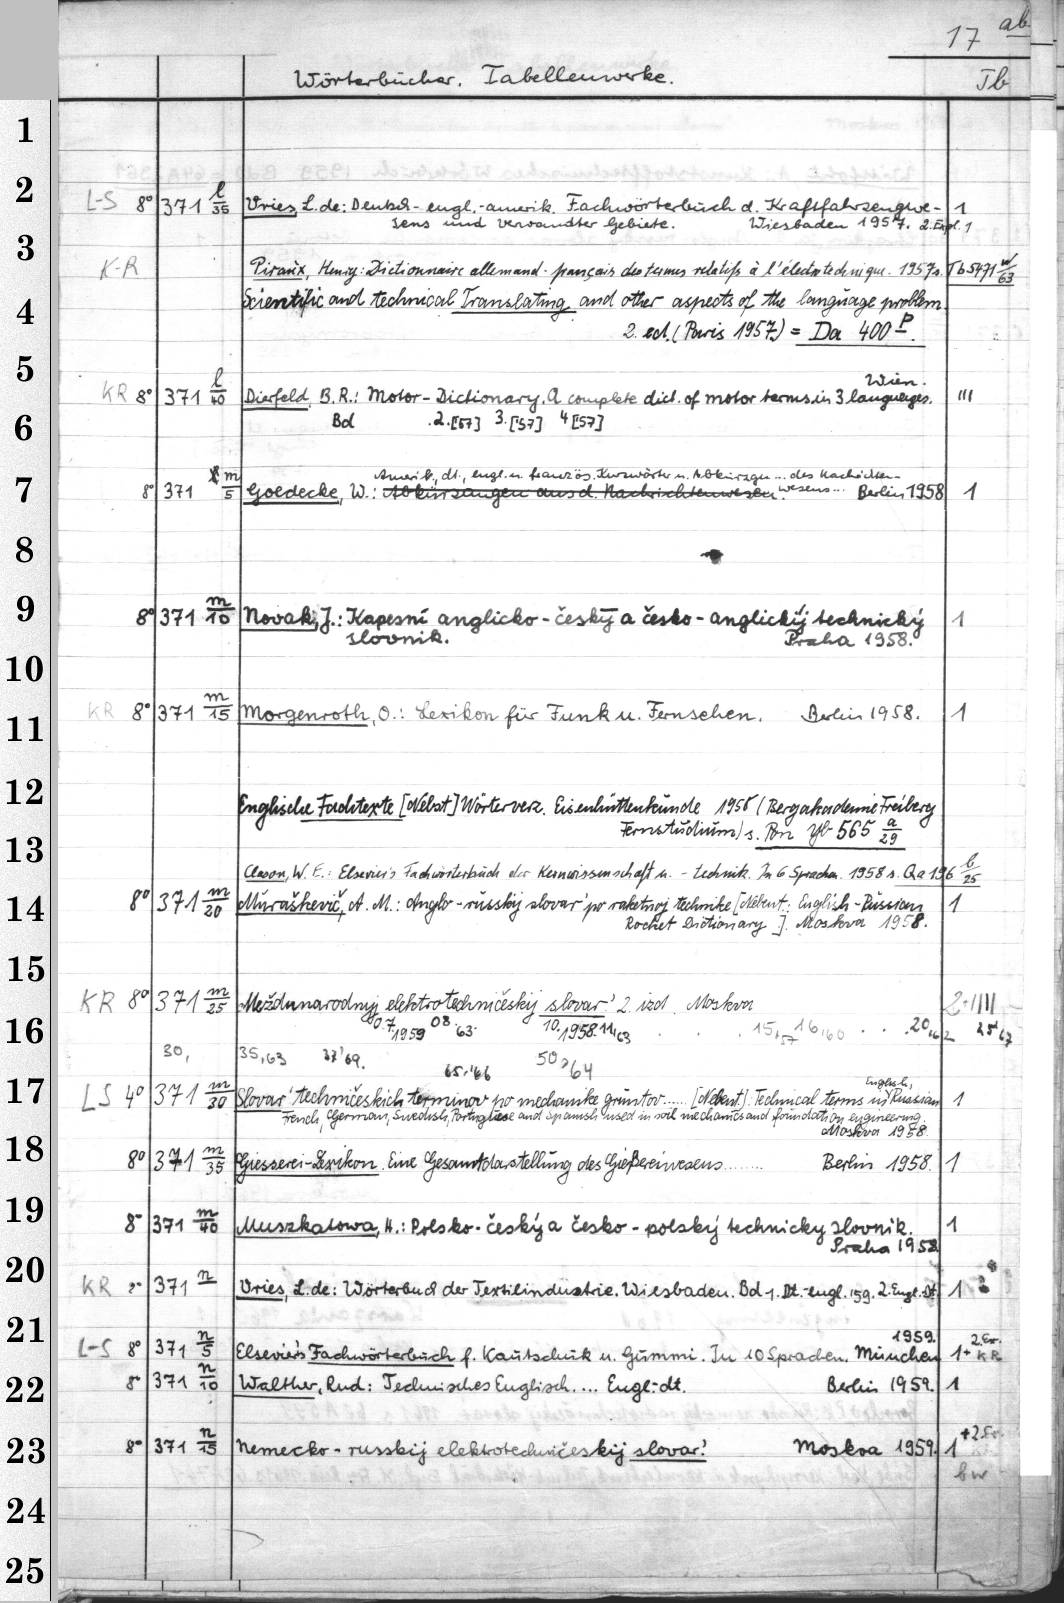 17 ab
Wörterbücher. Tabellenwerke. Tb
1
2
L-S 8° 371 l/35 Vries, L. de: Deutsch-engl.-amerik. Fachwörterbuch d. Kraftfahrzeugwe- 1
sens und verwandter Gebiete. Wiesbaden 1957. 2. Expl. 1
3
K-R Piraux, Henry: Dictionnaire allemand-français des termes relatifs à l'électrotechnique. 1957 s. Tb 5471 w/63
4
Scientific and technical Translating and other aspects of the language problem.
2. ed. (Paris 1957) = Da 400 P.
5
Wien.
KR 8° 371 l/40 Dierfeld, B.R.: Motor-Dictionary. A complete dict. of motor terms in 3 languages. III
6
Bd 2.[57] 3.[57] 4[57]
Amerik., dt., engl. u. französ. Kurzwörter u. Abkürzgn ... des Nachrichten-
7
8° 371 m/5 Goedecke, W.: Abkürzungen aus d. Nachrichtenwesen. wesens... Berlin 1958 1
8
9
8° 371 m/10 Novak, J.: Kapesní anglicko-český a česko-anglický technický 1
slovnik. Praha 1958.
10
11
KR 8° 371 m/15 Morgenroth, O.: Lexikon für Funk u. Fernsehen. Berlin 1958. 1
12
Englische Fachtexte [Nebst] Wörterverz. Eisenhüttenkunde 1956 (Bergakademie Freiberg
13
Fernstudium) s. Pon Yb 565 a/29
Clason, W. E.: Elsevier's Fachwörterbuch der Kernwissenschaft u. -technik. In 6 Sprachen. 1958 s. Qa 196 b/25
14
8° 371 m/20 Muraškevič, A. M.: Anglo-russkij slovar' po raketnoj technike [Nebent.: English-Russian 1
Rocket Dictionary]. Moskva 1958.
15
KR 8° 371 m/25 Meždunarodnyj elektrotechničeskij slovar' 2. izd. Moskva 2+IIII
16
07.1959 08'63. 10.1958. 11,63 15,57 16,60 20,62 25'67
30, 35,63 37'69. 65,'66 50,64
17
English,
LS 4° 371 m/30 Slovar' techničeskich terminov po mechanike gruntov ...... [Nebent]: Technical terms in Russian 1
French, German, Swedish, Portuguese and Spanish used in soil mechanics and foundation engineering
Moskva 1958.
18
8° 371 m/35 Giesserei-Lexikon. Eine Gesamtdarstellung des Gießereiwesens ........ Berlin 1958. 1
19
8° 371 m/40 Muszkatowa, H.: Polsko-český a česko-polský technicky slovnik. 1
Praha 1958
20
KR 8° 371 n Vries, L. de: Wörterbuch der Textilindustrie. Wiesbaden. Bd 1. Dt.-engl. 159. 2. Engl.-Dt. 1
21
1959.
L-S 8° 371 n/5 Elsevier's Fachwörterbuch f. Kautschuk u. Gummi. In 10 Sprachen. München 1+ 2.Ex. KR
22
8° 371 n/10 Walther, Rud: Technisches Englisch. ... Engl.-dt. Berlin 1959. 1
23
8° 371 n/15 Nemecko-russkij elektrotechničeskij slovar'. Moskva 1959. 1 +2.Ex.
bw
24
25